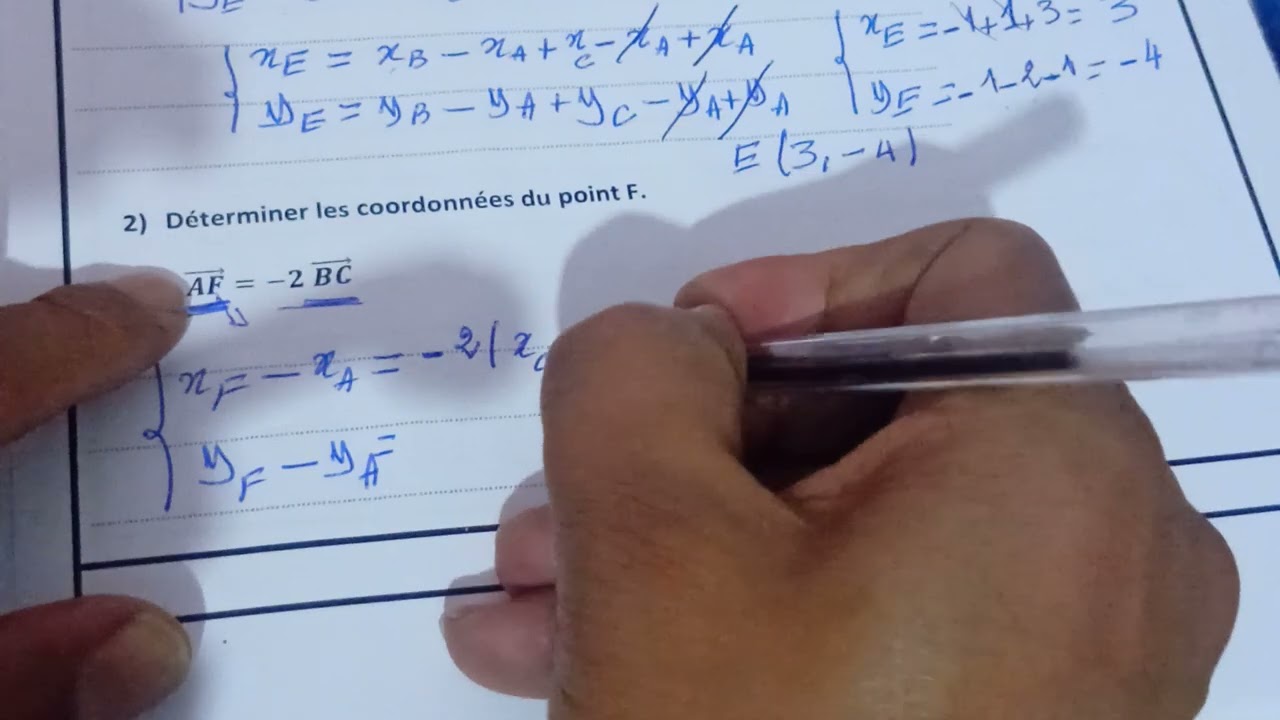 { xE = xB - xA + xC - xA + xA { xE = -1+1+3 = 3
yE = yB - yA + yC - yA + yA yE = -1-2-1 = -4
E (3, -4)
2) Déterminer les coordonnées du point F.
AF = -2 BC
{ xF - xA = -2( xC
yF - yA =